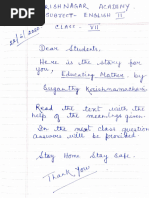 KRISHNAGAR ACADEMY
SUBJECT- ENGLISH II
CLASS - VII
22/6/2020
Dear Students,
Here is the story for
you, Educating Mother by
Suganthy Krishnamachari.
Read the text with the
help of the meanings given.
In the next class question
answers will be provided.
Stay Home Stay Safe.
Thank You